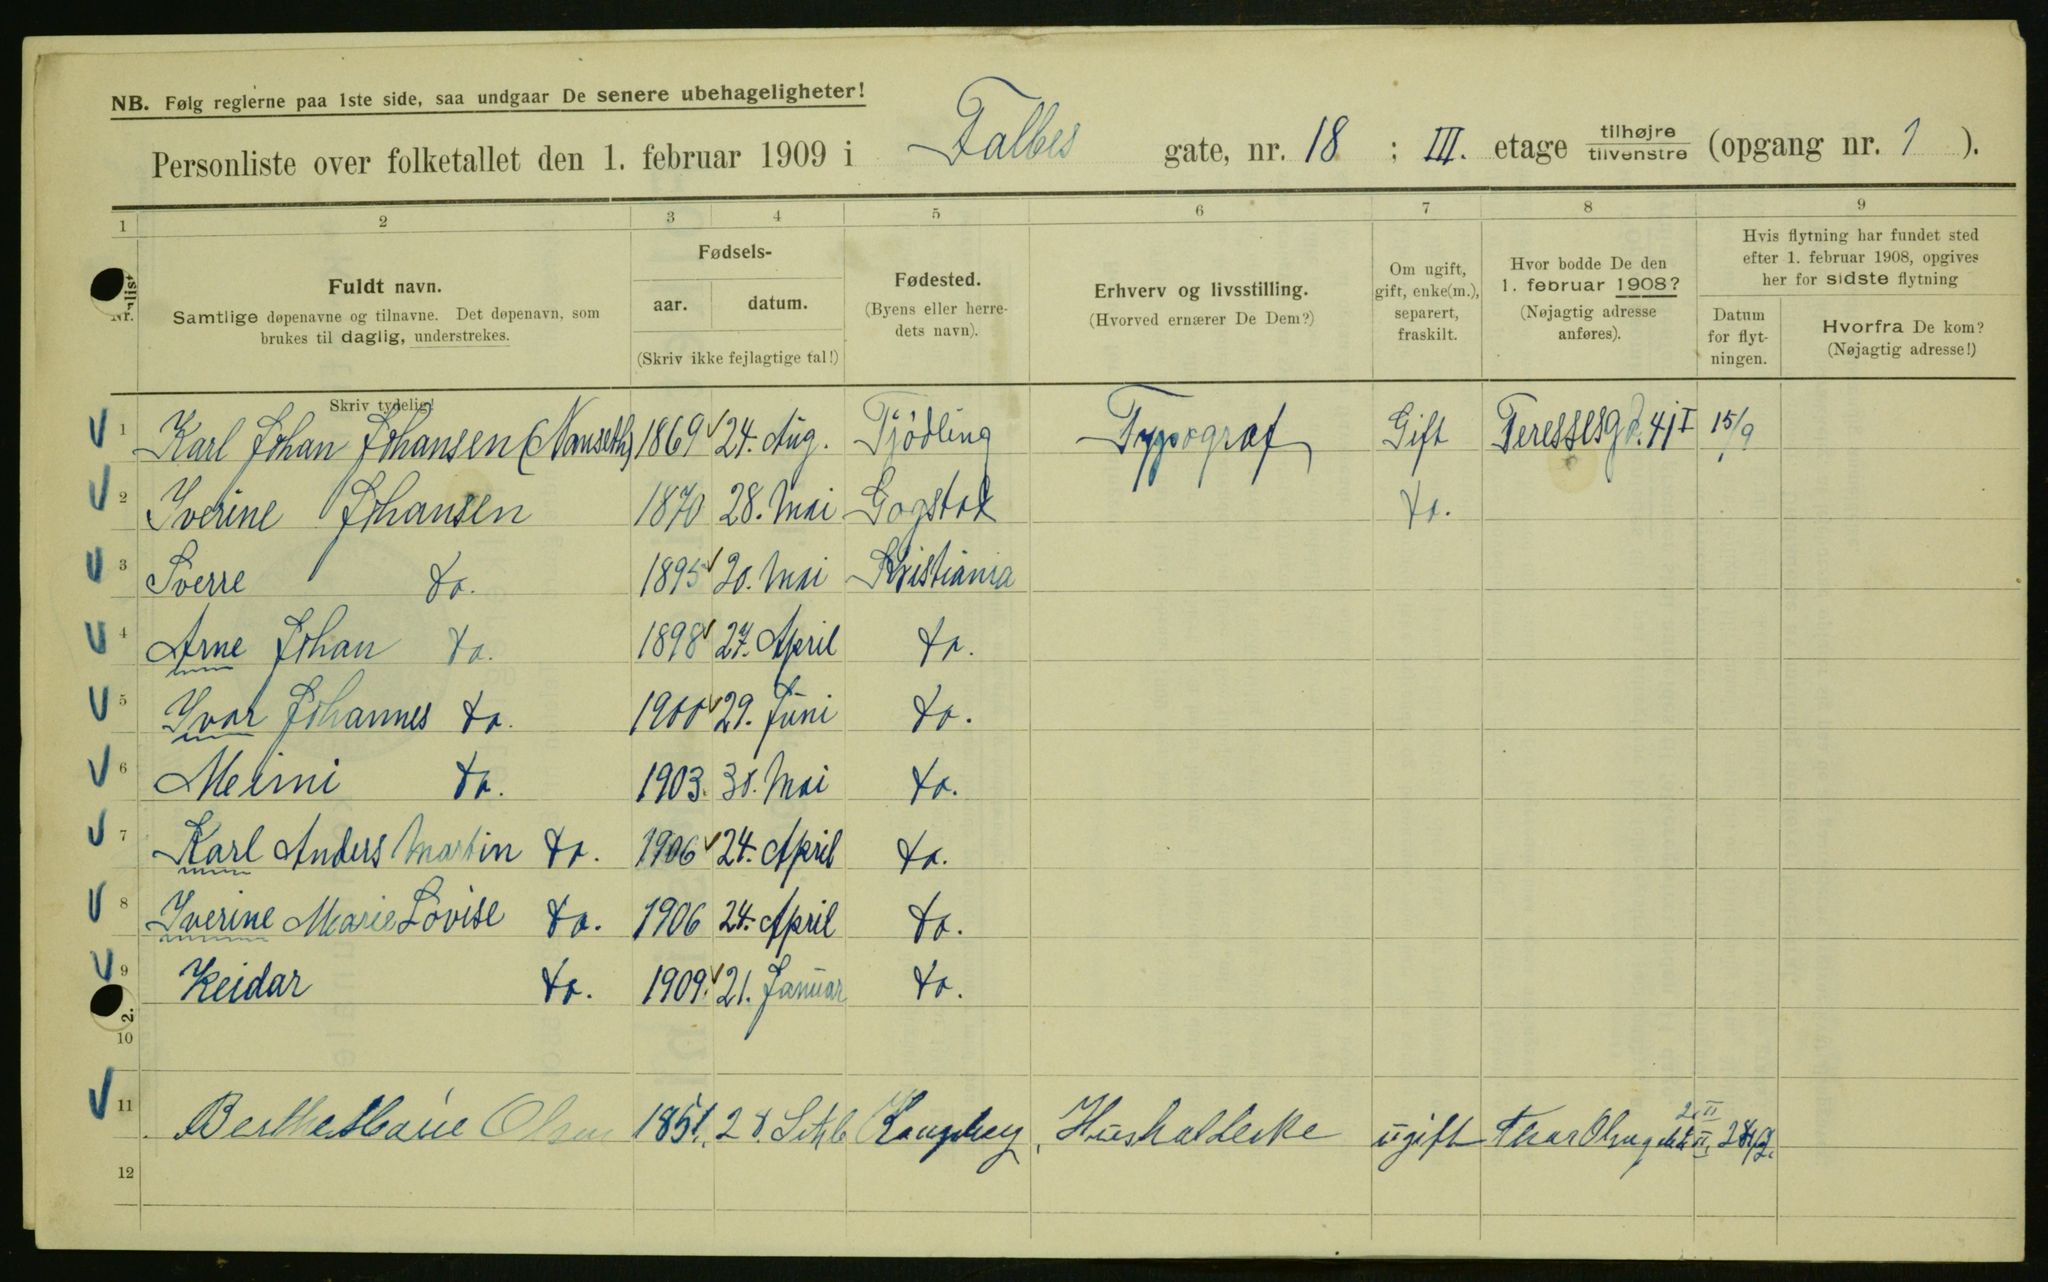 NB. Følg reglerne paa 1ste side, saa undgaar De senere ubehageligheter!
Personliste over folketallet den 1. februar 1909 i Falbes gate, nr. 18 ; III. etage tilhøjre / tilvenstre (opgang nr. 1 ).
1 2 3 4 5 6 7 8 9
Nr. Fuldt navn. Samtlige døpenavne og tilnavne. Det døpenavn, som brukes til daglig, understrekes.
Fødsels-
aar. datum.
(Skriv ikke fejlagtige tal!)
Fødested. (Byens eller herredets navn).
Erhverv og livsstilling. (Hvorved ernærer De Dem?)
Om ugift, gift, enke(m.), separert, fraskilt.
Hvor bodde De den 1. februar 1908? (Nøjagtig adresse anføres).
Hvis flytning har fundet sted efter 1. februar 1908, opgives her for sidste flytning
Datum for flytningen.
Hvorfra De kom? (Nøjagtig adresse!)
Skriv tydelig!
1 Karl Johan Johansen (Nanseth) 1869 24. Aug. Tjødling Typograf Gift Teressesgd. 41 I 15/9
2 Yverine Johansen 1870 28. Mai Gogstad do.
3 Sverre do. 1895 20. Mai Kristiania
4 Arne Johan do. 1898 27. April do.
5 Yvar Johannes do. 1900 29. Juni do.
6 Meimi do. 1903. 30. Mai do.
7 Karl Anders Martin do. 1906 24. April do.
8 Yverine Marie Lovise do. 1906 24. April do.
9 Reidar do. 1909. 21. Januar do.
10
11 Berthe Marie Olsen 1851. 28. Kongsberg Husholderske ugift Thor Olsens
12